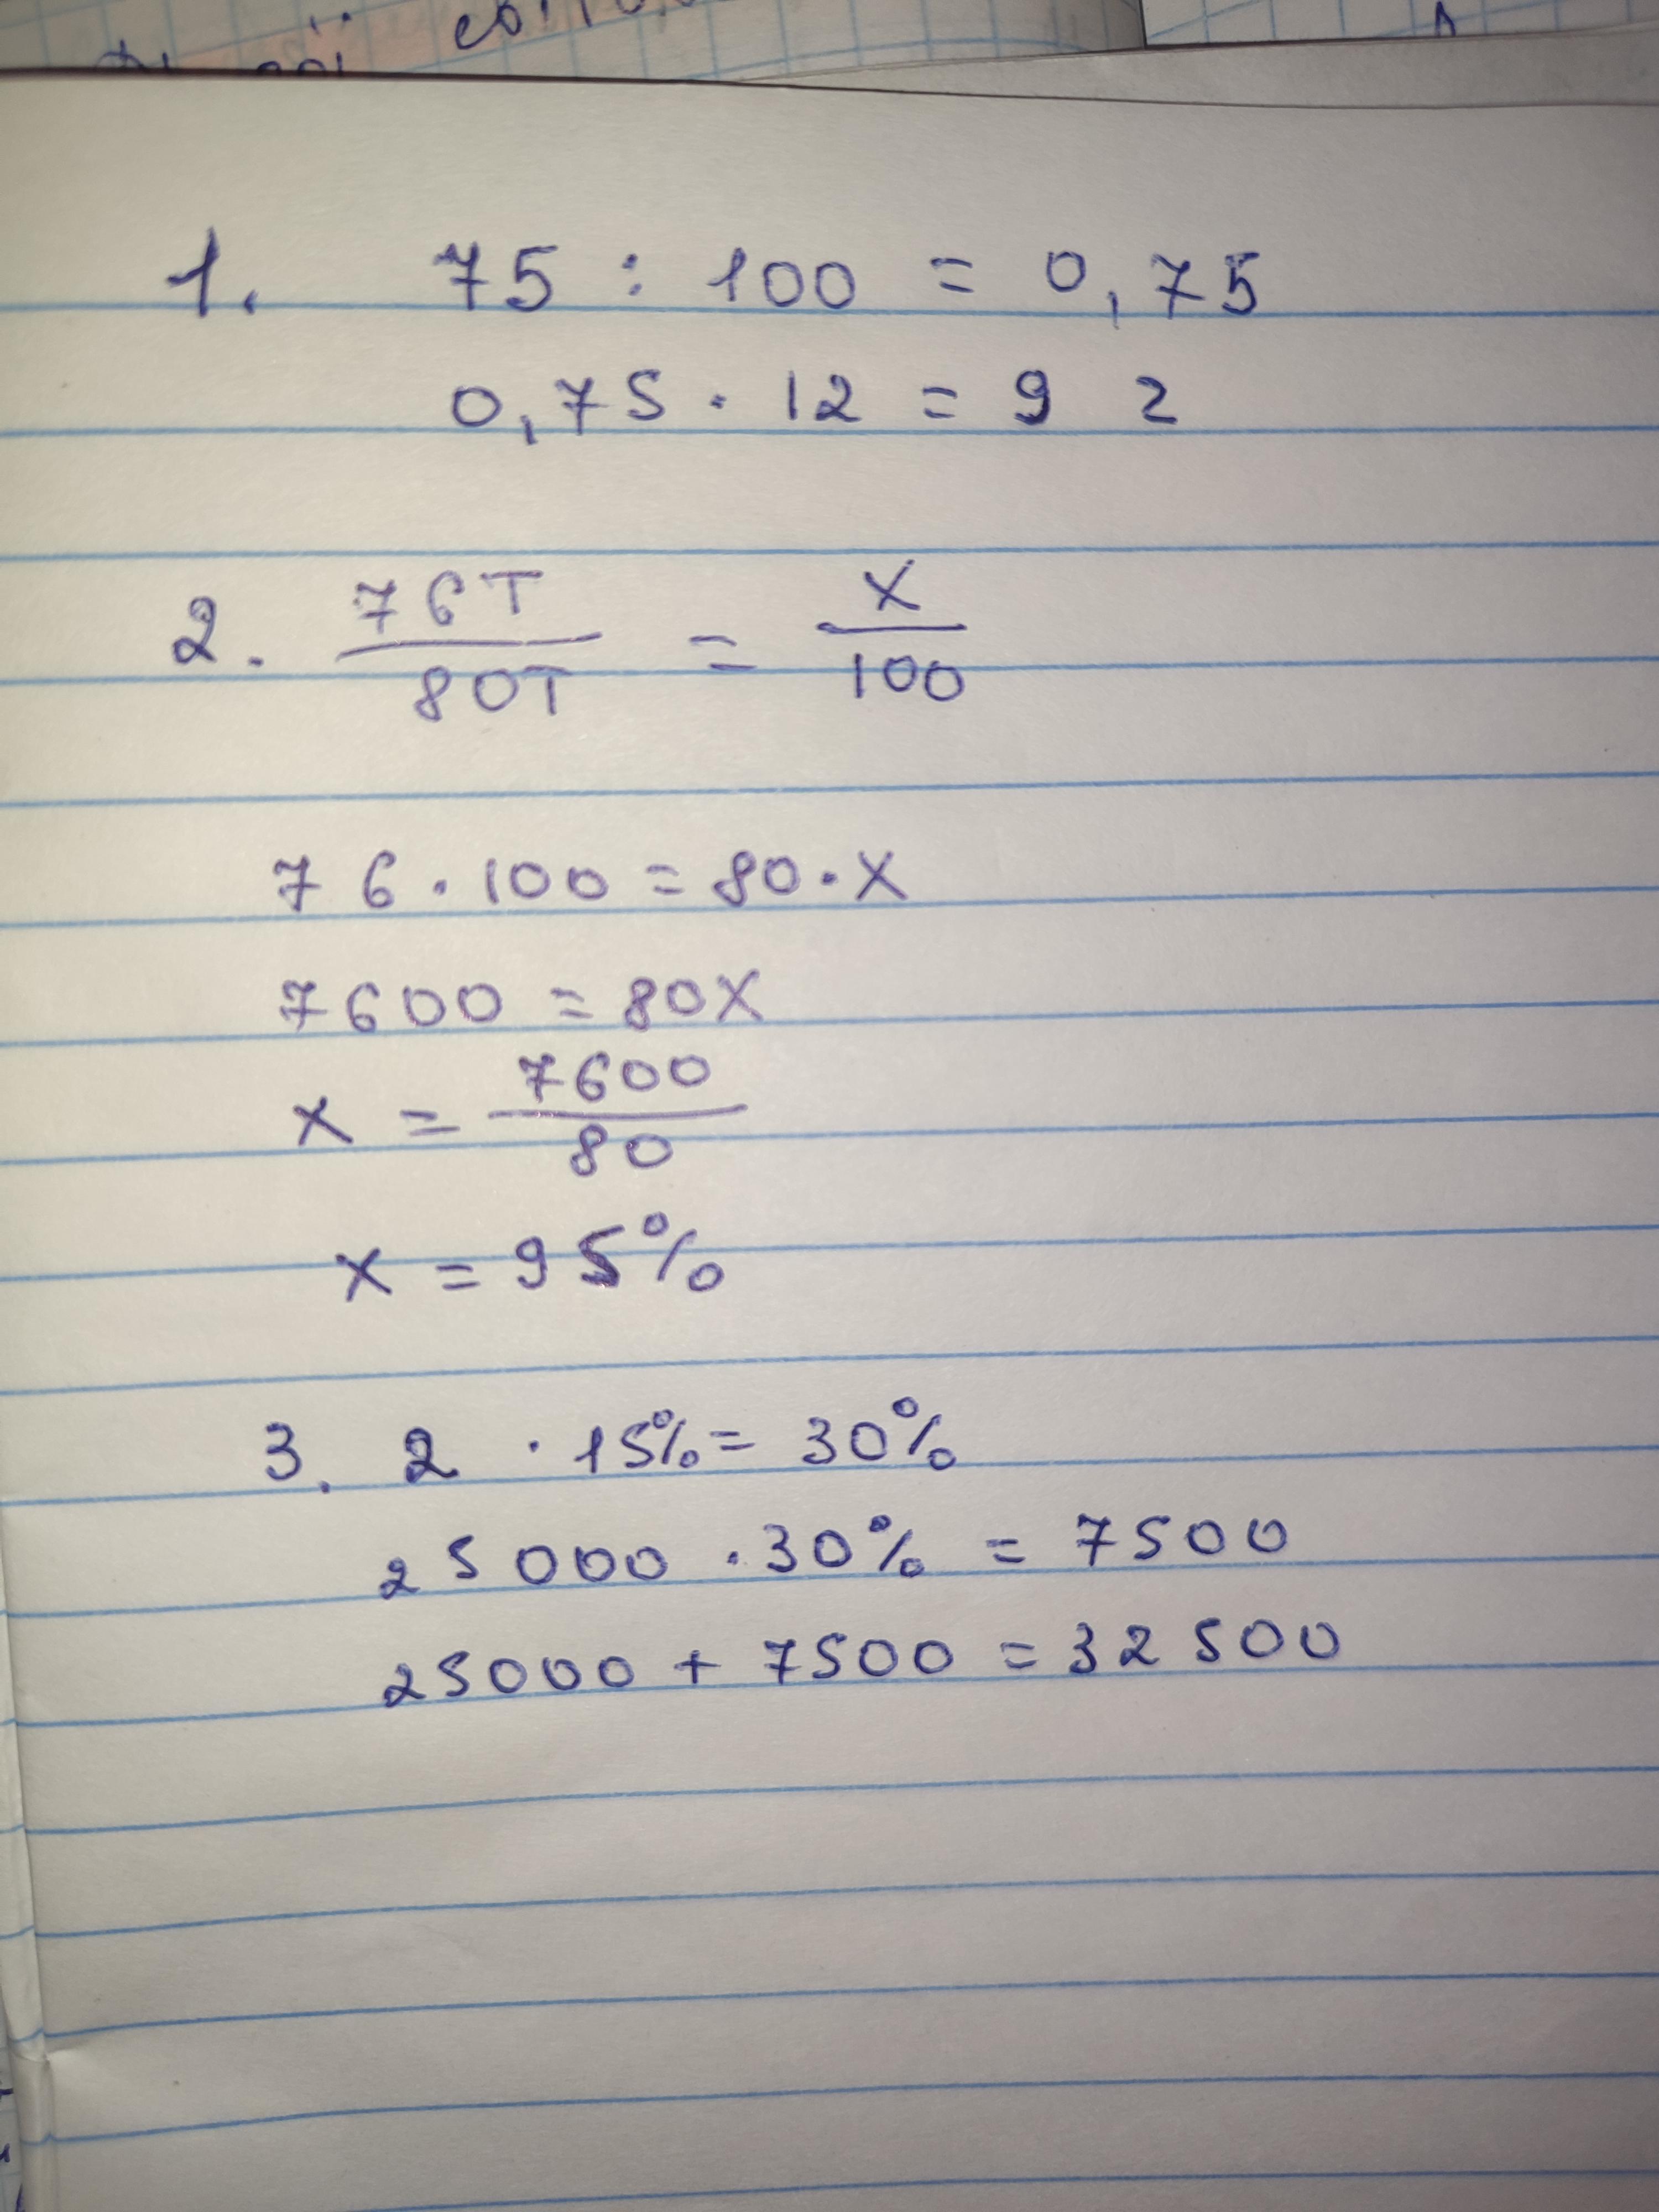 1. 75 : 100 = 0,75
0,75 · 12 = 9 г
2. 76т/80т = x/100
76 · 100 = 80 · x
7600 = 80x
x = 7600/80
x = 95%
3. 2 · 15% = 30%
25000 · 30% = 7500
25000 + 7500 = 32500